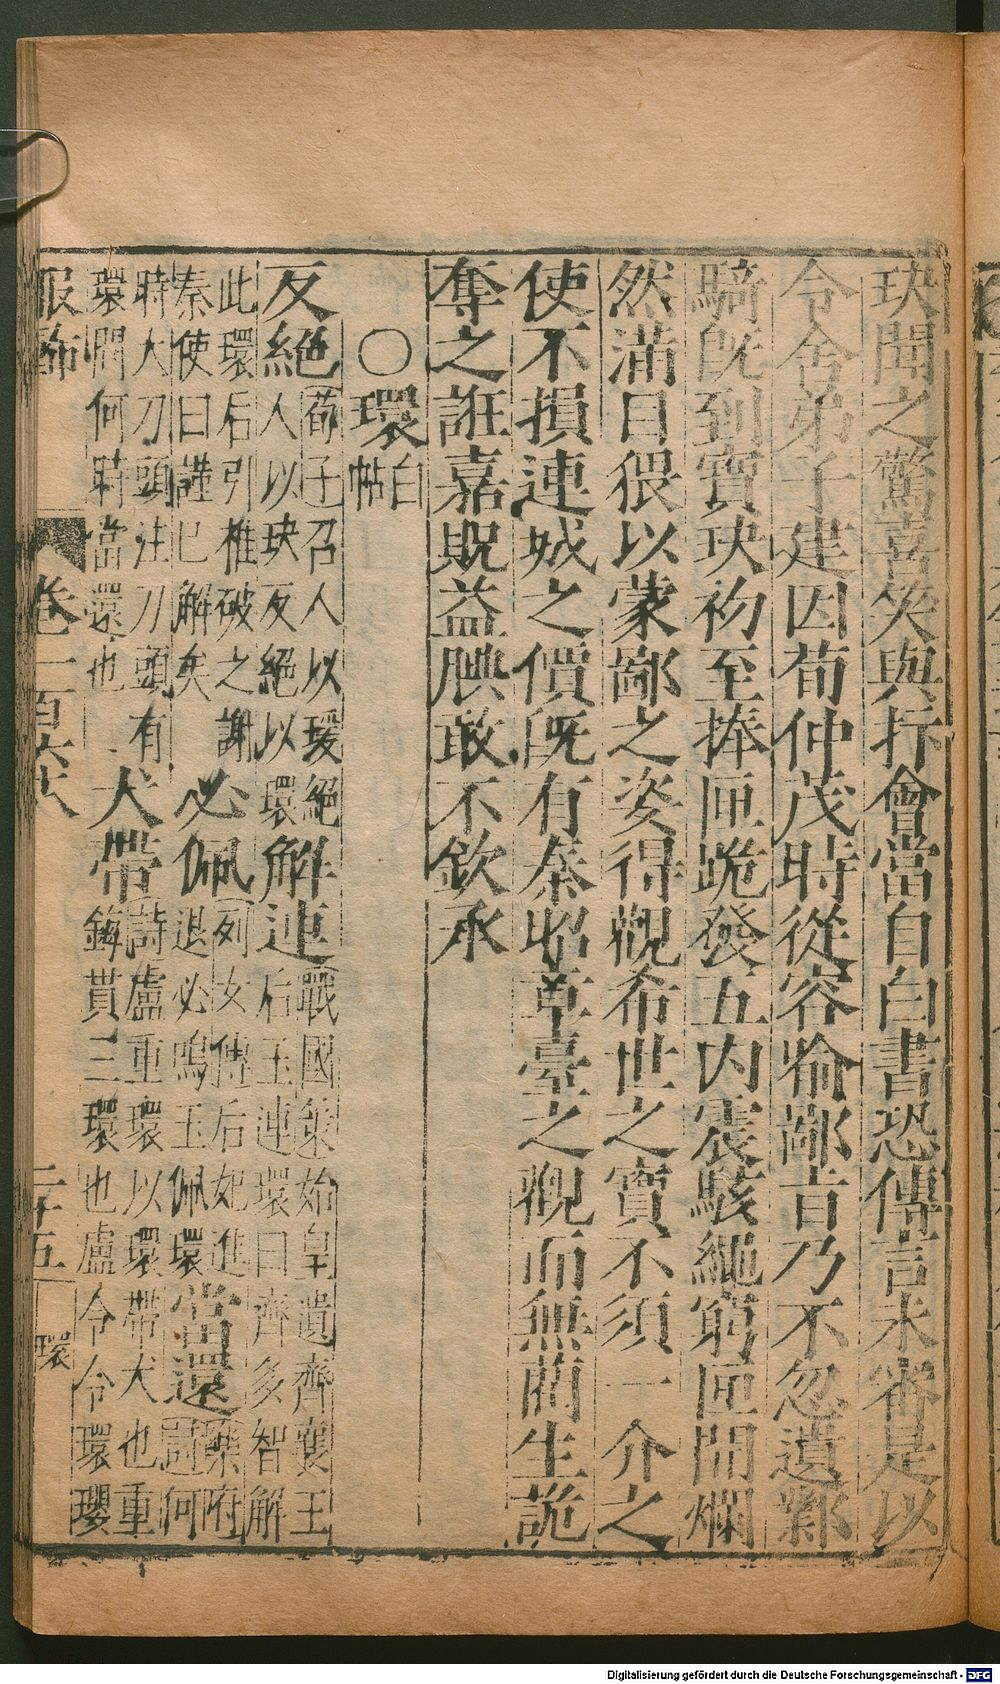 玦聞之驚喜笑與抃會當自白書恐傳言未審是以
令舍弟子建因荀仲茂時從容喻鄙旨乃不忽遺鄴
騎既到寶玦初至捧匣跪發五内震駭繩窮匣開爛
然滿目猥以蒙鄙之姿得觀希世之寶不須一介之
使不損連城之價既有秦昭章臺之觀而無藺生詭
奪之誑嘉貺益腆敢不欽承
〇環白帖
反絕荀子召人以瑗絕人以玦反絕以環解連戰國策始皇遺齊襄王后玉連環曰齊多智解
此環后引椎破之謝秦使曰謹已解矣必佩列女傳后妃進退必鳴玉佩環當還樂府詞何
時大刀頭注刀頭有環問何時當還也犬帶詩盧重環以環帶犬也重鋂貫三環也盧令令環瓔
服飾 卷一百六 二十五 環
Digitalisierung gefördert durch die Deutsche Forschungsgemeinschaft - DFG